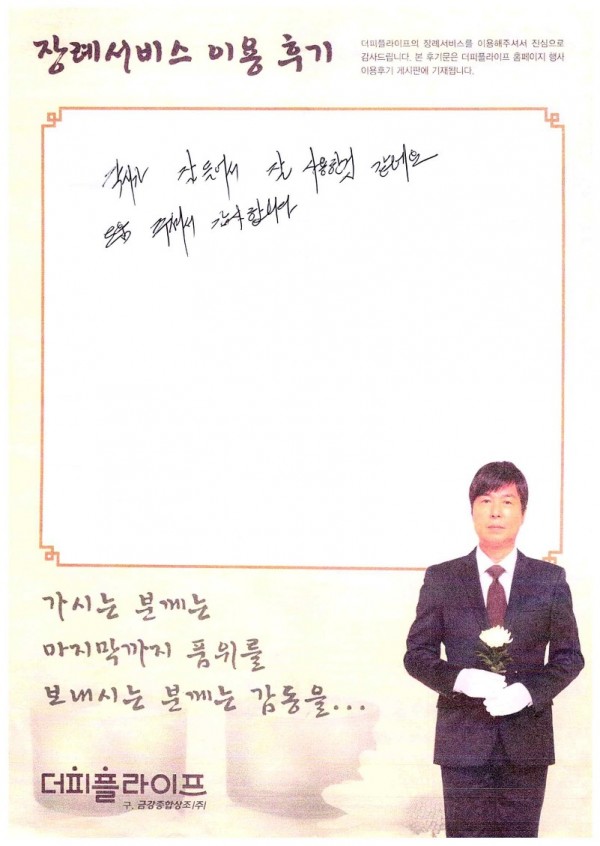 장례서비스 이용 후기
더피플라이프의 장례서비스를 이용해주셔서 진심으로
감사드립니다. 본 후기문은 더피플라이프 홈페이지 행사
이용후기 게시판에 기재됩니다.
잘 사용한것 같네요
감사합니다
가시는 분께는
마지막까지 품위를
보내시는 분께는 감동을...
더피플라이프
구. 금강종합상조(주)